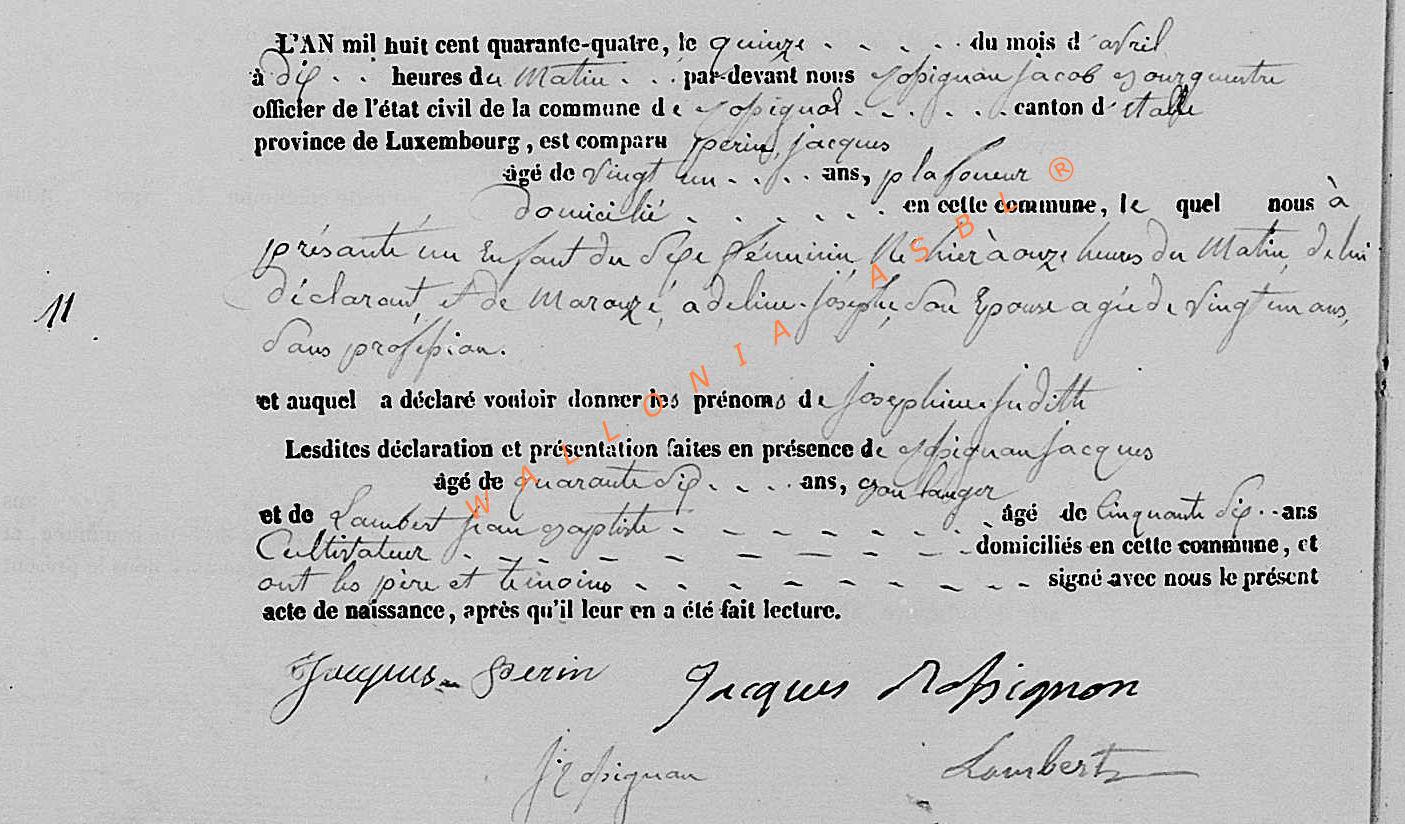 L'AN mil huit cent quarante-quatre, le quinze . . . . . du mois d'avril
à dix . . heures du Matin . . . par-devant nous Rossignon Jacob Bourguemtre
officier de l'état civil de la commune de Rossignol . . . . . . canton d'Etalle
province de Luxembourg, est comparu Perin, Jacques
âgé de vingt un . . . . ans, plafoneur
domicilié . . . . . . . en cette commune, le quel nous à
présanté un Enfant du Sexe féminin, Né hier à onze heures du Matin, de lui
déclarant, et de Marouzé, adeline Josephe, Son Epouse agée de vingt un ans,
Sans profession.
11
et auquel a déclaré vouloir donner les prénoms de Josephine Judith
Lesdites déclaration et présentation faites en présence de Rossignon Jacques
âgé de quarante six . . . . ans, Boulanger
et de Lambert jean Baptiste - - - - - - - âgé de Cinquante six . . ans
Cultivateur - - - - - - - - - domiciliés en cette commune, et
ont les père et témoins - - - - - - - - signé avec nous le présent
acte de naissance, après qu'il leur en a été fait lecture.
Jacques Perin Jacques Rossignon
J Rossignon Lambert
WALLONIA ASBL ®